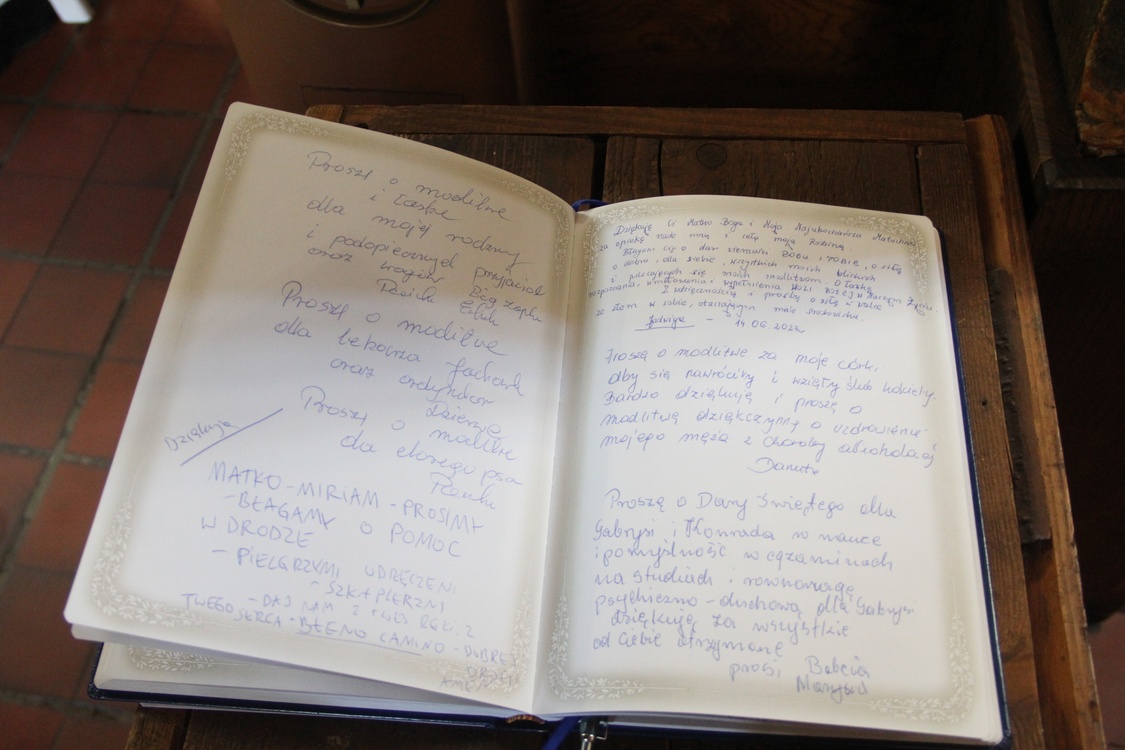 Proszę o modlitwę
i łaskę
dla mojej rodziny
i podopiecznych przyjaciół
oraz
Proszę o modlitwę
dla lekarza
oraz
Proszę o modlitwę
dla chorego psa
Dziękuję
MATKO - MIRIAM - PROSIMY
- BŁAGAMY O POMOC
W DRODZE
- PIELGRZYMI UDRĘCZENI
- SZKAPLERZNI
- DAJ NAM Z TWEJ RĘKI Z
TWEGO SERCA - CAMINO - DOBREJ
DROGI
AMEN
Dziękuję Ci Matko Boga i Moja Najukochańsza Matuchno
za opiekę nade mną i całą moją Rodziną.
Błagam Cię o dar
o dobro, dla siebie, wszystkich moich bliskich
i polecających się moich modlitwom. O łaskę
rozpoznania, i wypełnienia Woli Bożej w Naszym Życiu.
Z wdzięcznością i prośbą o siłę w walce
ze złem w sobie, otaczającym moje środowisko.
Jadwiga - 14 06 2022
Proszę o modlitwę za moje córki,
aby się nawróciły i wzięły ślub kościelny.
Bardzo dziękuję i proszę o
modlitwę dziękczynną o uzdrowienie
mojego męża z choroby alkoholowej
Danuta
Proszę o Dary Świętego dla
Gabrysi i Konrada w nauce
i pomyślność w egzaminach
na studiach i równowagę
psychiczno - duchową dla Gabrysi
dziękuję za wszystkie
od Ciebie otrzymane
prosi Babcia